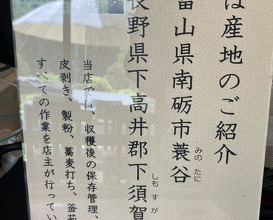 は産地のご紹介
富山県南砺市蓑谷
みの たに
長野県下高井郡下須賀
しも すが
当店では、収穫後の保存管理、
皮剥き、製粉、蕎麦打ち、釜茹
すべての作業を店主が行ってい